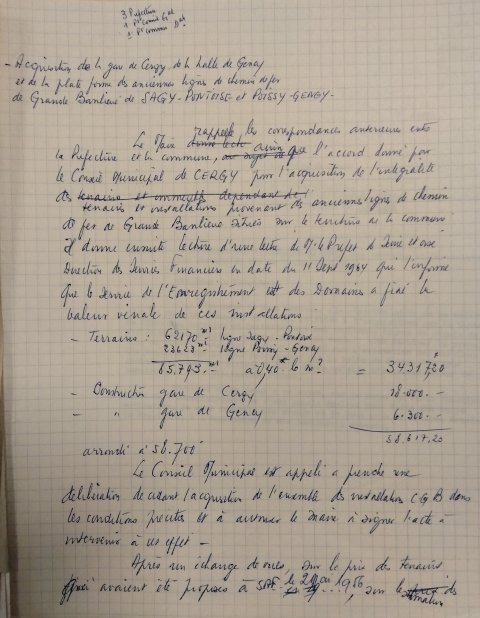 3 Préfecture
1 Pr Conseil Gal
1 Pr Commune
- Acquisition de la gare de Cergy de la halle de Gency
et de la plate forme des anciennes lignes de chemin de fer
de Grande Banlieue de SAGY-PONTOISE et POISSY-GENCY-
Le Maire rappelle, les correspondances antérieures entre
la Préfecture et la commune, ainsi que l'accord donné par
le Conseil Municipal de CERGY pour l'acquisition de l'intégralité
des terrains et immeubles dépendant de l'
terrains et installations provenant des anciennes lignes de chemin
de fer de Grande Banlieue situés sur le territoire de la commune
il donne ensuite lecture d'une lettre de Mr le Préfet de Seine et oise
Direction des Services Financiers en date du 11 Sept 1964 qui l'informe
que le Service de l'Enregistrement et des Domaines a fixé la
valeur vénale de ces installations :
- Terrains : 62170 m² ligne Sagy - Pontoise
23623 m² ligne Poissy - Gency
85.793 m² à 0,40 le m² = 34317,20
- Construction gare de Cergy 18.000.-
- " gare de Gency 6.300.-
58.617,20
arrondi à 58.700
Le Conseil Municipal est appelé à prendre une
délibération décidant l'acquisition de l'ensemble des installations CGB dans
les conditions précitées et à autoriser le Maire à signer l'acte à
intervenir à cet effet -
Après un échange de vues, sur le prix des terrains
qui avaient été proposés à 1956, sur le prix des